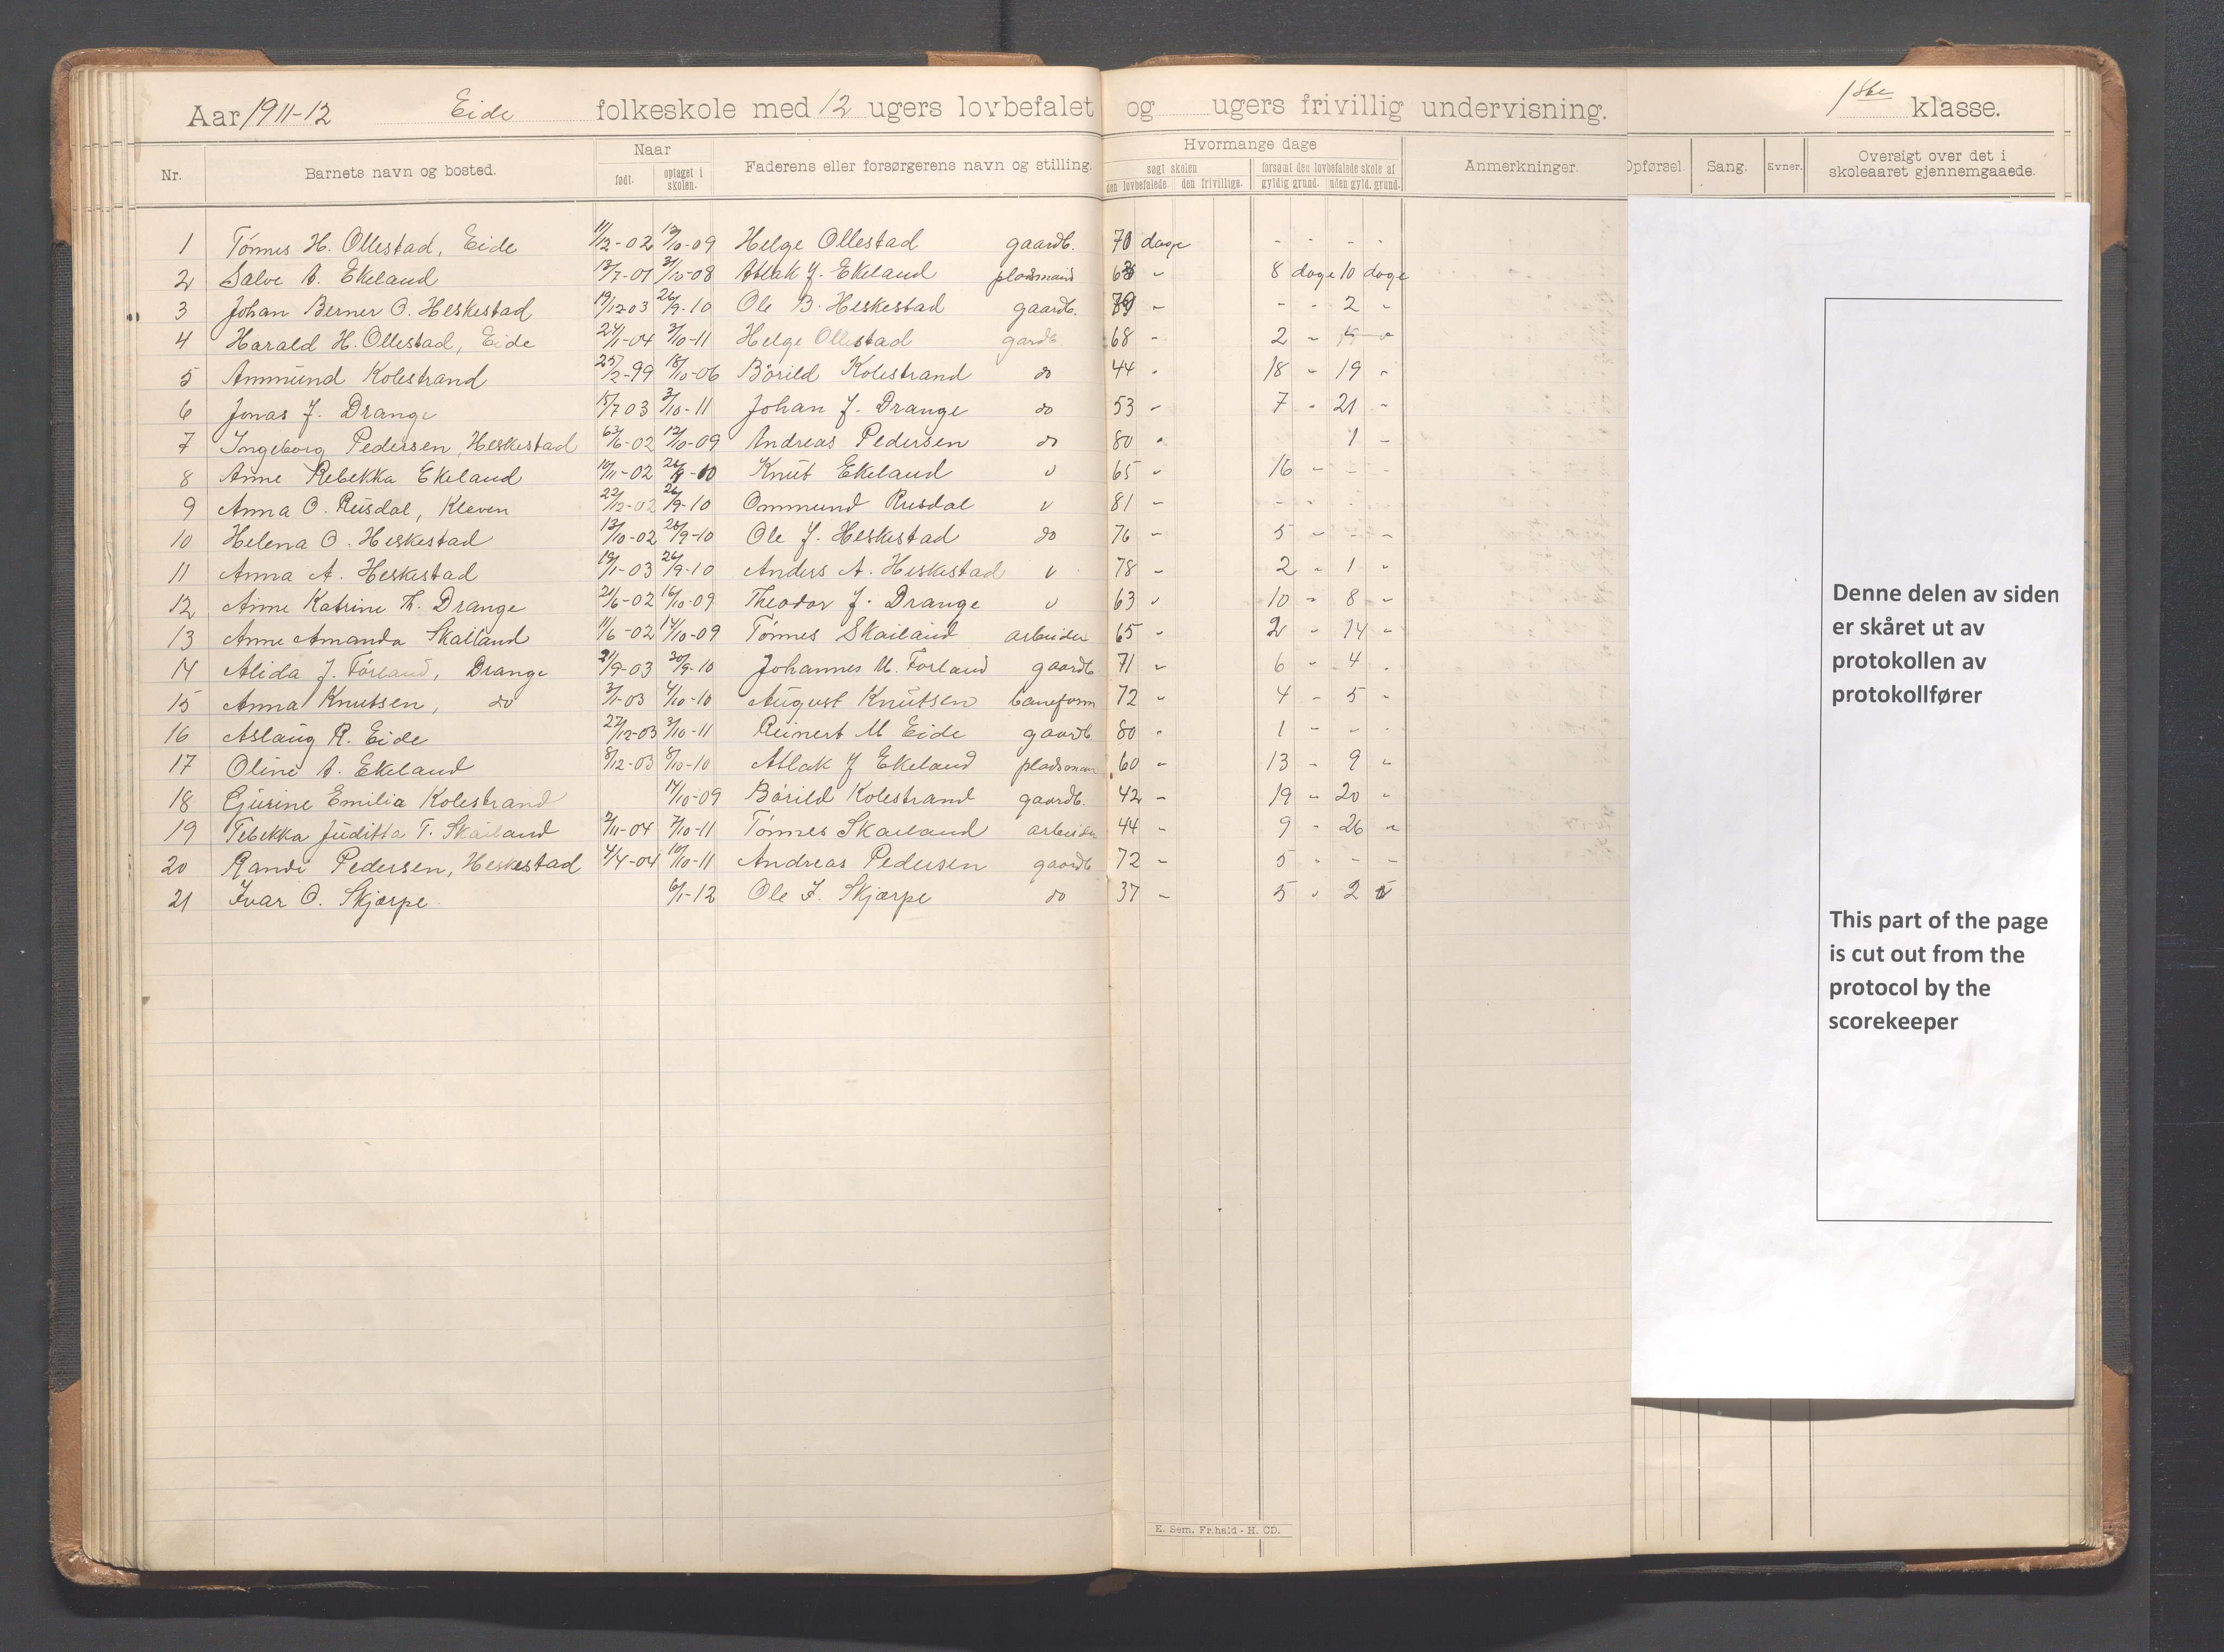 Aar 1911-12 Eide folkeskole med 12 ugers lovbefalet og ugers frivillig undervisning. 1ste klasse.
Nr. Barnets navn og bosted. Naar født. optaget i skolen. Faderens eller forsørgerens navn og stilling. Hvormange dage søgt skolen den lovbefalede den frivillige. forsømt den lovbefalede skole af gyldig grund. uden gyld. grund. Anmerkninger. Opførsel. Sang. Evner. Oversigt over det i skoleaaret gjennemgaaede.
1 Tönnes H. Ollestad, Eide 11/12-02 12/10-09 Helge Ollestad gaardb. 70 dage - - - -
2 Salve A. Ekeland 3/10-08 Atlak J. Ekeland pladsmand 8 dage 10 dage
3 Johan Berner O. Heskestad 19/12-03 26/9-10 Ole B. Heskestad gaardb. - - 2 -
4 Harald H. Ollestad, Eide 24/1-04 3/10-11 Helge Ollestad gardb. 68 - 2 -
5 Ammund Kolestrand 25/2-99 18/10-06 Börild Kolestrand do 44 - 18 - 19 -
6 Jonas J. Drange 15/7 03 3/10-11 Johan J. Drange do 53 - 7 - 21 -
7 Ingeborg Pedersen, Heskestad 12/10-09 Andreas Pedersen do 80 - 1 -
8 Anne Rebekka Ekeland 10/11-02 26/9-10 Knut Ekeland " 65 - 16 - - -
9 Anna O. Rusdal, Kleven 22/12-02 26/9-10 Ommund Rusdal " 81 - - - -
10 Helena O. Heskestad 13/10-02 26/9-10 Ole J. Heskestad do 76 - 5 - - -
11 Anna A. Heskestad 19/1-03 26/9-10 Anders A. Heskestad " 78 - 2 - 1 -
12 Anne Katrine Th. Drange 21/6-02 16/10-09 Theodor J. Drange " 63 - 10 - 8 -
13 Anne Amanda Skailand 11/6-02 14/10-09 Tönnes Skailand arbeider 65 - 2 - 14 -
14 Alida J. Förland, Drange 21/9-03 30/9-10 Johannes M. Förland gaardb 71 - 6 - 4 -
15 Anna Knutsen, do 3/1-03 4/10-10 August Knutsen baneform 72 - 4 - 5 -
16 Aslaug R. Eide 27/12-03 3/10-11 Reinert M Eide gaardb. 80 - 1 - - -
17 Oline A. Ekeland 8/12-03 8/10-10 Atlak J Ekeland pladsman 60 - 13 - 9 -
18 Gjurine Emilia Kolestrand 14/10-09 Börild Kolestrand gaardb. 42 - 19 - 20 -
19 Tebekka Juditta T. Skailand 2/11-04 7/10-11 Tönnes Skailand arbeider 44 - 9 - 26 -
20 Randi Pedersen, Heskestad 4/4-04 10/10-11 Andreas Pedersen gaardb 72 - 5 - - -
21 Ivar O. Skjærpe 6/1-12 Ole I. Skjærpe do 37 - 5 - 2
Denne delen av siden
er skåret ut av
protokollen av
protokollfører
This part of the page
is cut out from the
protocol by the
scorekeeper
E. Sem. Fr.hald - H. CD.